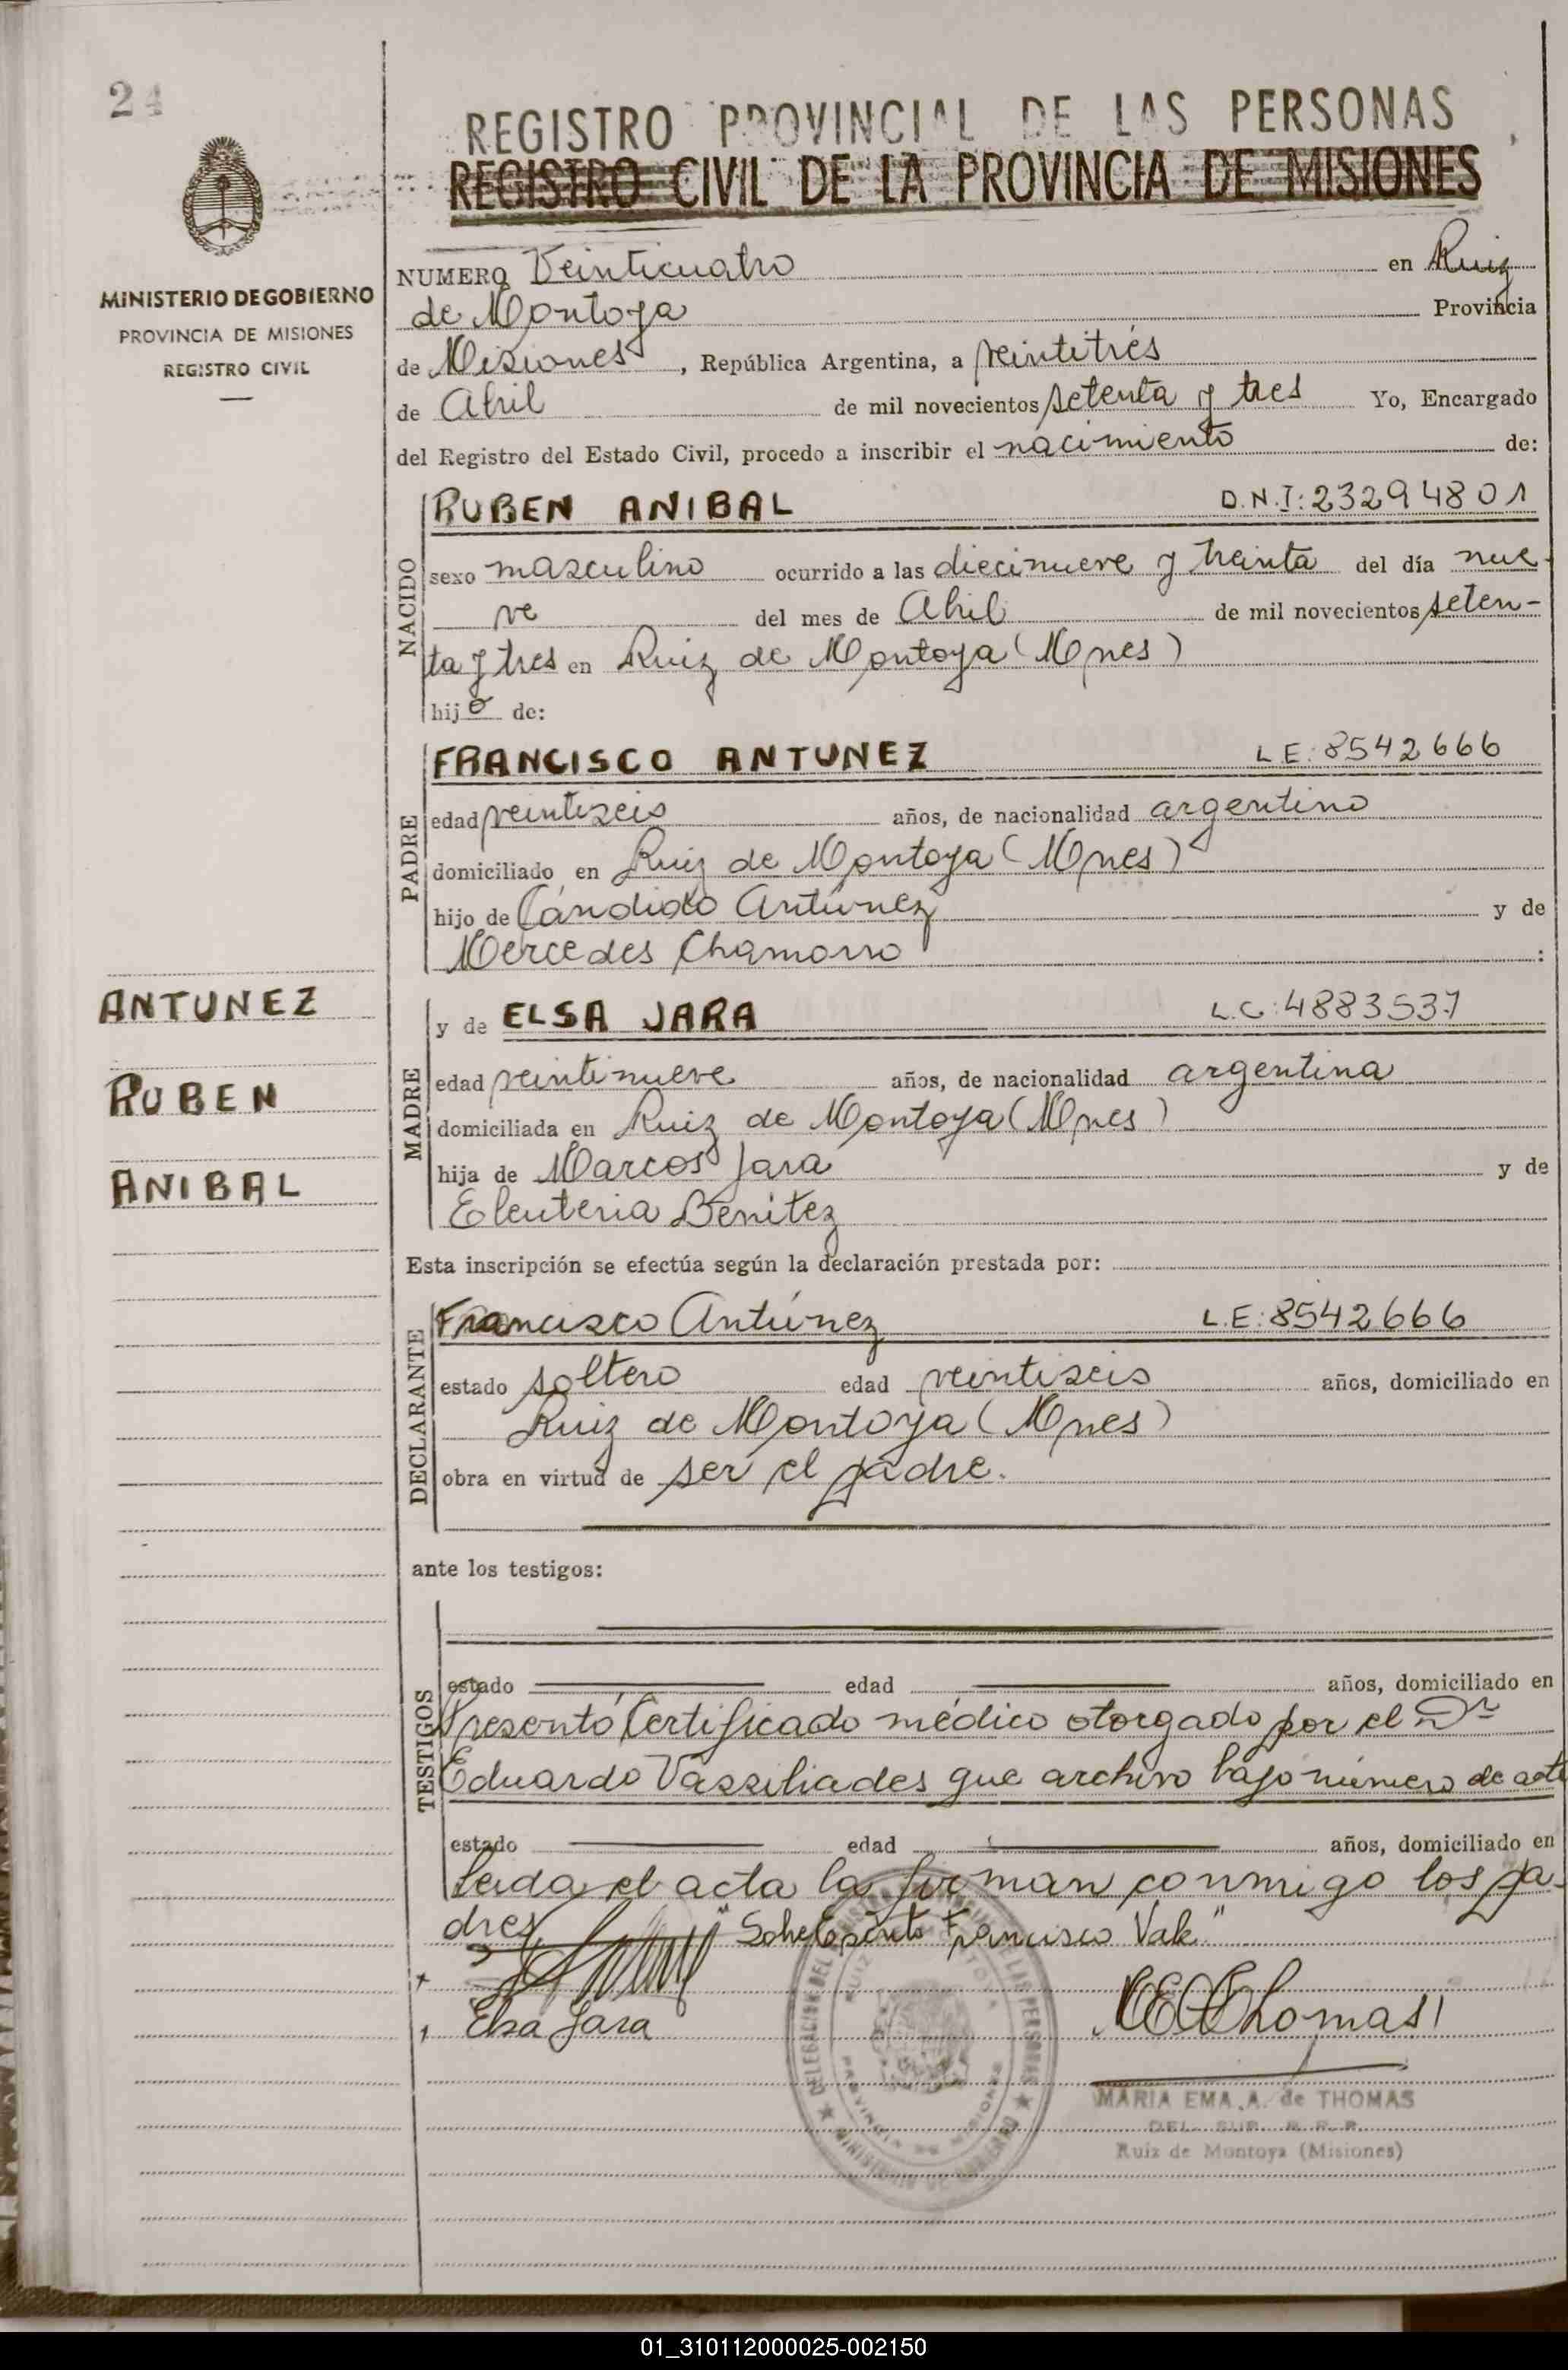 24
REGISTRO PROVINCIAL DE LAS PERSONAS
REGISTRO CIVIL DE LA PROVINCIA DE MISIONES
MINISTERIO DE GOBIERNO
PROVINCIA DE MISIONES
REGISTRO CIVIL
NUMERO Veinticuatro en Ruiz
de Montoya Provincia
de Misiones, República Argentina, a veintitrés
de Abril de mil novecientos setenta y tres Yo, Encargado
del Registro del Estado Civil, procedo a inscribir el nacimiento de:
NACIDO
RUBEN ANIBAL D.N.I: 23294801
sexo masculino ocurrido a las diecinueve y treinta del día nue-
ve del mes de Abril de mil novecientos seten-
ta y tres en Ruiz de Montoya (Mnes)
hijo de:
PADRE
FRANCISCO ANTUNEZ L.E: 8542666
edad veintiseis años, de nacionalidad argentino
domiciliado en Ruiz de Montoya (Mnes)
hijo de Cándido Antúnez y de
Mercedes Chamorro :
ANTUNEZ
RUBEN
ANIBAL
MADRE
y de ELSA JARA L.C: 4883537
edad veintinueve años, de nacionalidad argentina
domiciliada en Ruiz de Montoya (Mnes)
hija de Marcos Jara y de
Eleuteria Benitez
Esta inscripción se efectúa según la declaración prestada por:
DECLARANTE
Francisco Antúnez L.E: 8542666
estado soltero edad veintiseis años, domiciliado en
Ruiz de Montoya (Mnes)
obra en virtud de ser el padre.
ante los testigos:
TESTIGOS
estado edad años, domiciliado en
Presentó Certificado médico otorgado por el Dr
Eduardo Vassiliades que archivo bajo número de acta
estado edad años, domiciliado en
Leída el acta la firman conmigo los pa-
dres "Sobre Escrito Francisco Vale"
Elsa Jara
Thomas
MARIA EMA A. de THOMAS
DEL. SUP. R. P. P.
Ruiz de Montoya (Misiones)
01_310112000025-002150